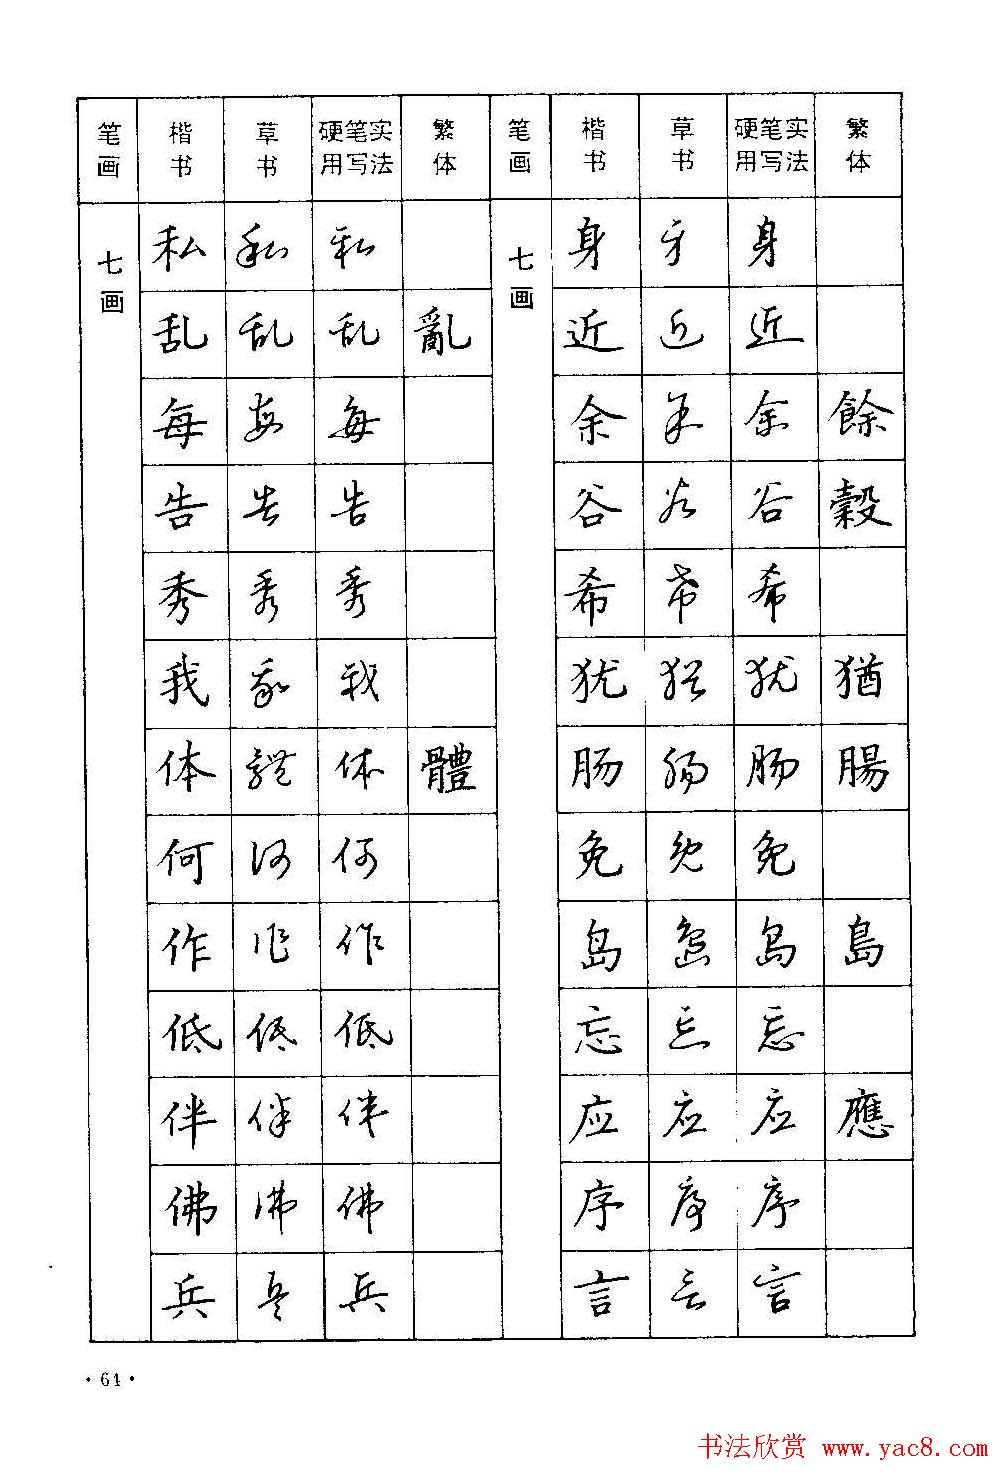 笔画 楷书 草书 硬笔实用写法 繁体 笔画 楷书 草书 硬笔实用写法 繁体
七画 私 私 私 七画 身 身 身
乱 乱 乱 亂 近 近 近
每 每 每 余 余 余 餘
告 告 告 谷 谷 谷 穀
秀 秀 秀 希 希 希
我 我 我 犹 犹 犹 猶
体 体 体 體 肠 肠 肠 腸
何 何 何 免 免 免
作 作 作 岛 岛 岛 島
低 低 低 忘 忘 忘
伴 伴 伴 应 应 应 應
佛 佛 佛 序 序 序
兵 兵 兵 言 言 言
·64·
书法欣赏 www.yac8.com